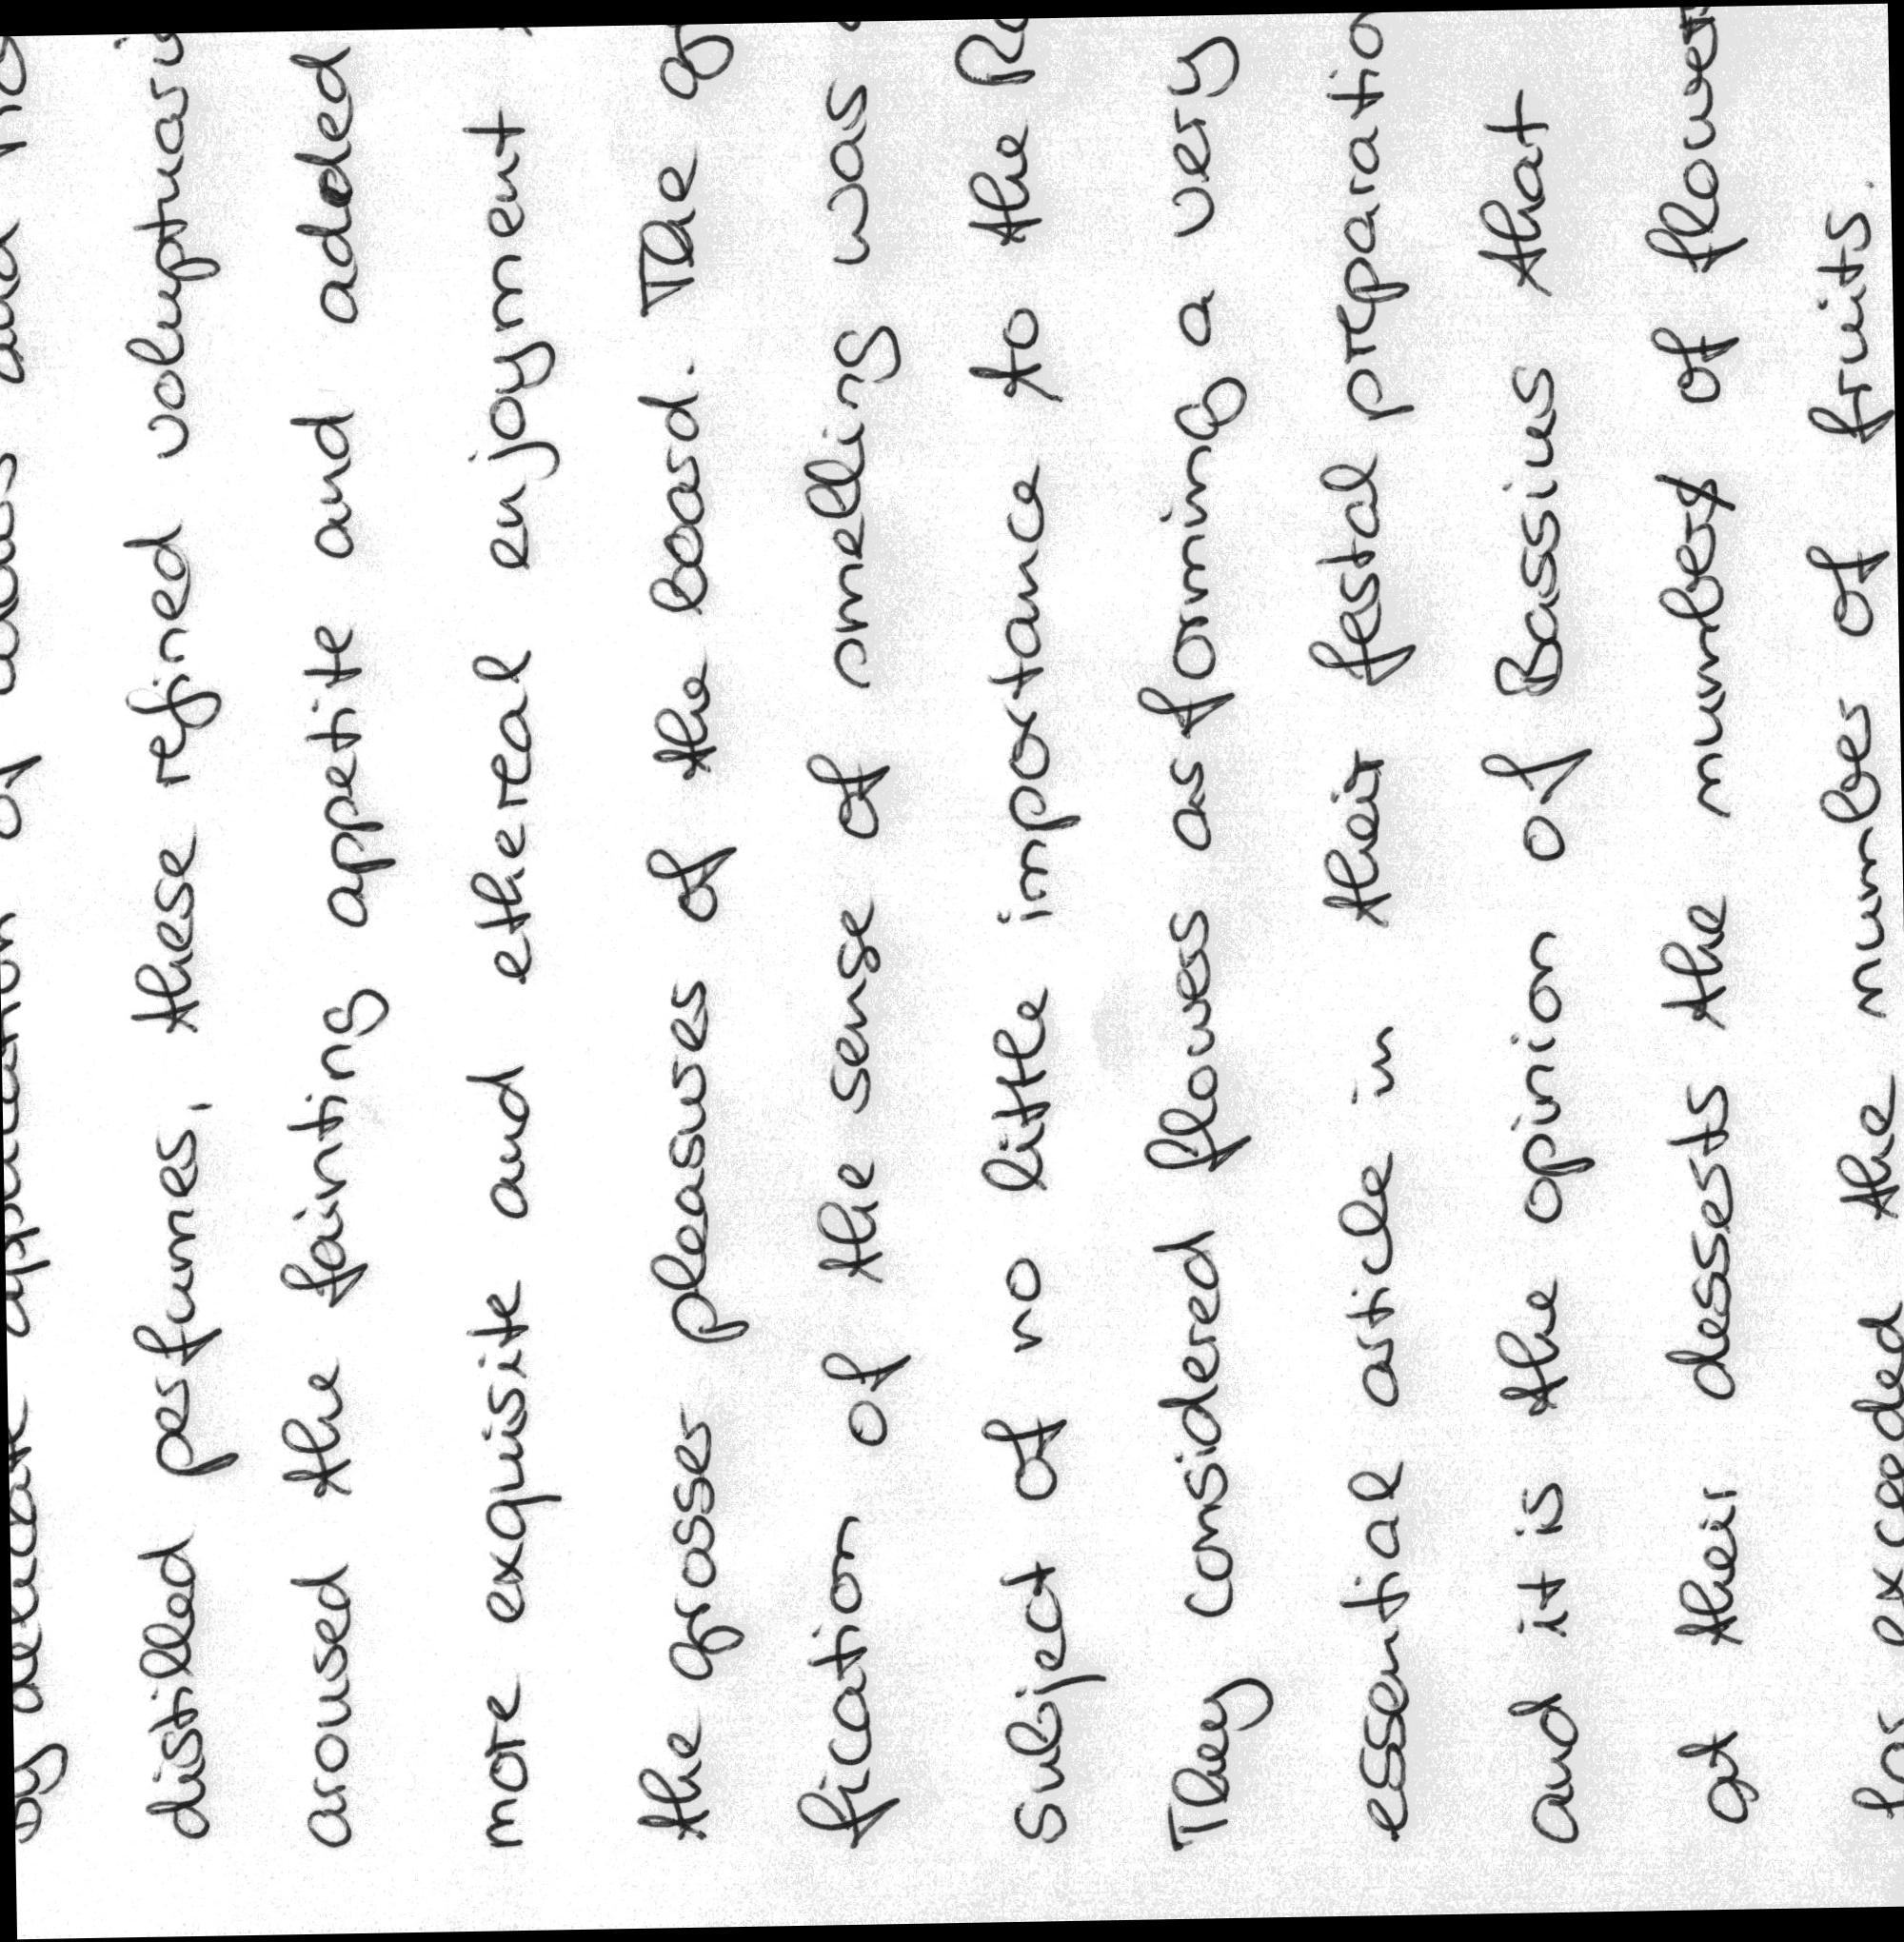 by delicate application of and
distilled perfumes, these refined voluptuari
aroused the fainting appetite and added
more exquisite and ethereal enjoyment
the grosser pleasures of the board. The
fication of the sense of smelling was
subject of no little importance to the Ro
They considered flowers as forming a very
essential article in their festal preparatio
and it is the opinion of Bassius that
at their desserts the number of flower
far exceeded the number of fruits.